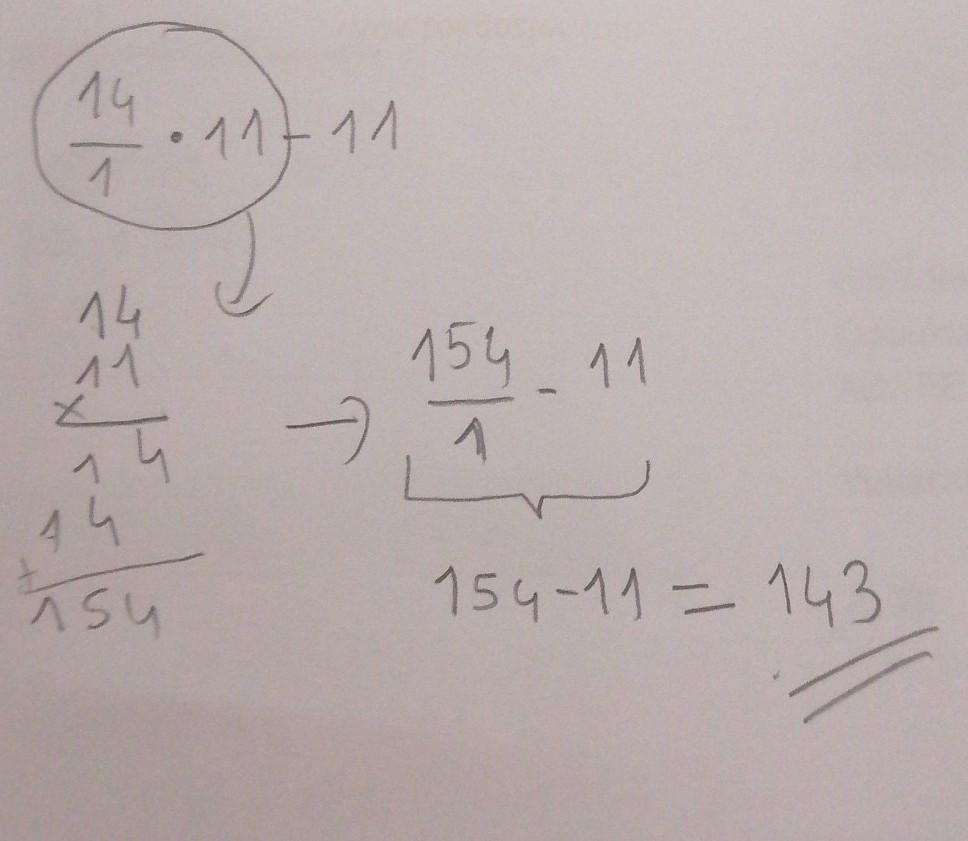 14/1 · 11 - 11
14
11
×
14
14
+
154
→ 154/1 - 11
154-11 = 143